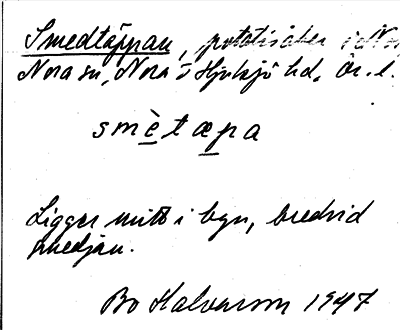 Smedtäppan, potatisåker i
Nora sn, Nora o Hjulsjö hd, Ör. l.
smètæpa
Ligger mitt i byn, bredvid
smedjan.
Bo Kalvenson 1947